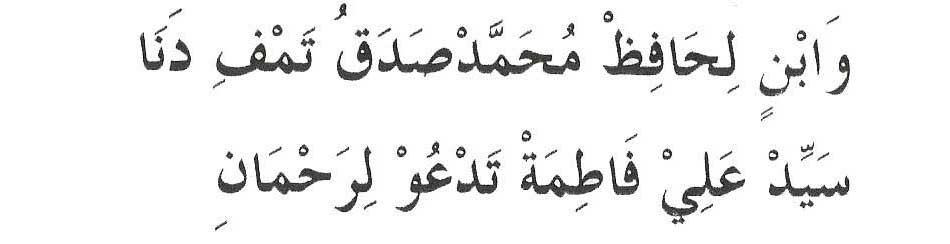 وَابْنٍ لِحَافِظْ مُحَمَّدْصَدَقُ تَمْفِ دَنَا
سَيِّدْ عَلِيْ فَاطِمَةْ تَدْعُوْ لِرَحْمَانِ